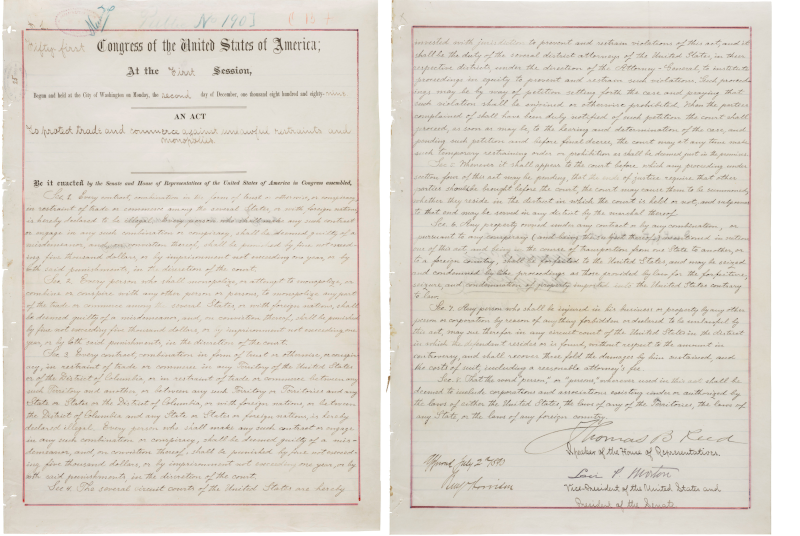 Public No 190
Fifty first Congress of the United States of America;
At the First Session,
Begun and held at the City of Washington on Monday, the second day of December, one thousand eight hundred and eighty-nine
AN ACT
To protect trade and commerce against unlawful restraints and
monopolies
Be it enacted by the Senate and House of Representatives of the United States of America in Congress assembled,
Sec. 1. Every contract, combination in the form of trust or otherwise, or conspiracy,
in restraint of trade or commerce among the several States, or with foreign nations,
is hereby declared to be illegal. Every person who shall make any such contract
or engage in any such combination or conspiracy, shall be deemed guilty of a
misdemeanor, and, on conviction thereof, shall be punished by fine not exceed-
ing five thousand dollars, or by imprisonment not exceeding one year, or by
both said punishments, in the discretion of the court.
Sec. 2. Every person who shall monopolize, or attempt to monopolize, or
combine or conspire with any other person or persons, to monopolize any part
of the trade or commerce among the several States, or with foreign nations, shall
be deemed guilty of a misdemeanor, and, on conviction thereof, shall be punished
by fine not exceeding five thousand dollars, or by imprisonment not exceeding one
year, or by both said punishments, in the discretion of the court.
Sec. 3. Every contract, combination in form of trust or otherwise, or conspir-
acy, in restraint of trade or commerce in any Territory of the United States
or of the District of Columbia, or in restraint of trade or commerce between any
such Territory and another, or between any such Territory or Territories and any
State or States or the District of Columbia, or with foreign nations, or between
the District of Columbia and any State or States or foreign nations, is hereby
declared illegal. Every person who shall make any such contract or engage
in any such combination or conspiracy, shall be deemed guilty of a misde-
meanor, and, on conviction thereof, shall be punished by fine not exceed-
ing five thousand dollars, or by imprisonment not exceeding one year, or by
both said punishments, in the discretion of the court.
Sec. 4. The several circuit courts of the United States are hereby
invested with jurisdiction to prevent and restrain violations of this act; and it
shall be the duty of the several district attorneys of the United States, in their
respective districts, under the direction of the Attorney-General, to institute
proceedings in equity to prevent and restrain such violations. Such proceed-
ings may be by way of petition setting forth the case and praying that
such violation shall be enjoined or otherwise prohibited. When the parties
complained of shall have been duly notified of such petition the court shall
proceed, as soon as may be, to the hearing and determination of the case; and
pending such petition and before final decree, the court may at any time make
such temporary restraining order or prohibition as shall be deemed just in the premises.
Sec. 5. Whenever it shall appear to the court before which any proceeding under
section four of this act may be pending, that the ends of justice require that other
parties should be brought before the court, the court may cause them to be summoned,
whether they reside in the district in which the court is held or not; and subpoenas
to that end may be served in any district by the marshal thereof.
Sec. 6. Any property owned under any contract or by any combination, or
pursuant to any conspiracy (and being the subject thereof) mentioned in section
one of this act, and being in the course of transportation from one State to another, or
to a foreign country, shall be forfeited to the United States, and may be seized
and condemned by like proceedings as those provided by law for the forfeiture,
seizure, and condemnation of property imported into the United States contrary
to law.
Sec. 7. Any person who shall be injured in his business or property by any other
person or corporation by reason of anything forbidden or declared to be unlawful by
this act, may sue therefor in any circuit court of the United States in the district
in which the defendant resides or is found, without respect to the amount in
controversy, and shall recover three fold the damages by him sustained, and
the costs of suit, including a reasonable attorney's fee.
Sec. 8. That the word "person," or "persons," wherever used in this act shall be
deemed to include corporations and associations existing under or authorized by
the laws of either the United States, the laws of any of the Territories, the laws of
any State, or the laws of any foreign country.
Thomas B Reed
Speaker of the House of Representatives.
Approved July 2d 1890
Levi P. Morton
Benj Harrison
Vice-President of the United States and
President of the Senate.